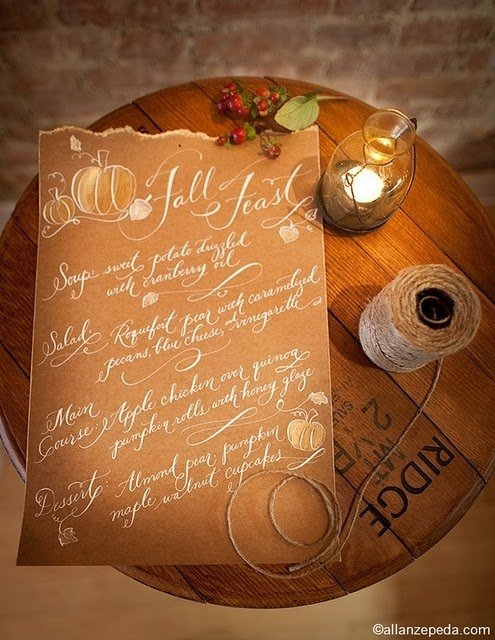 Fall Feast
Soup: sweet potato drizzled
with cranberry oil
Salad: Roquefort pear with caramelized
pecans, blue cheese, + vinegarette
Main
Course: Apple chicken over quinoa
pumpkin rolls with honey glaze
Dessert: Almond pear, pumpkin
maple walnut cupcakes
RIDGE
©allanzepeda.com